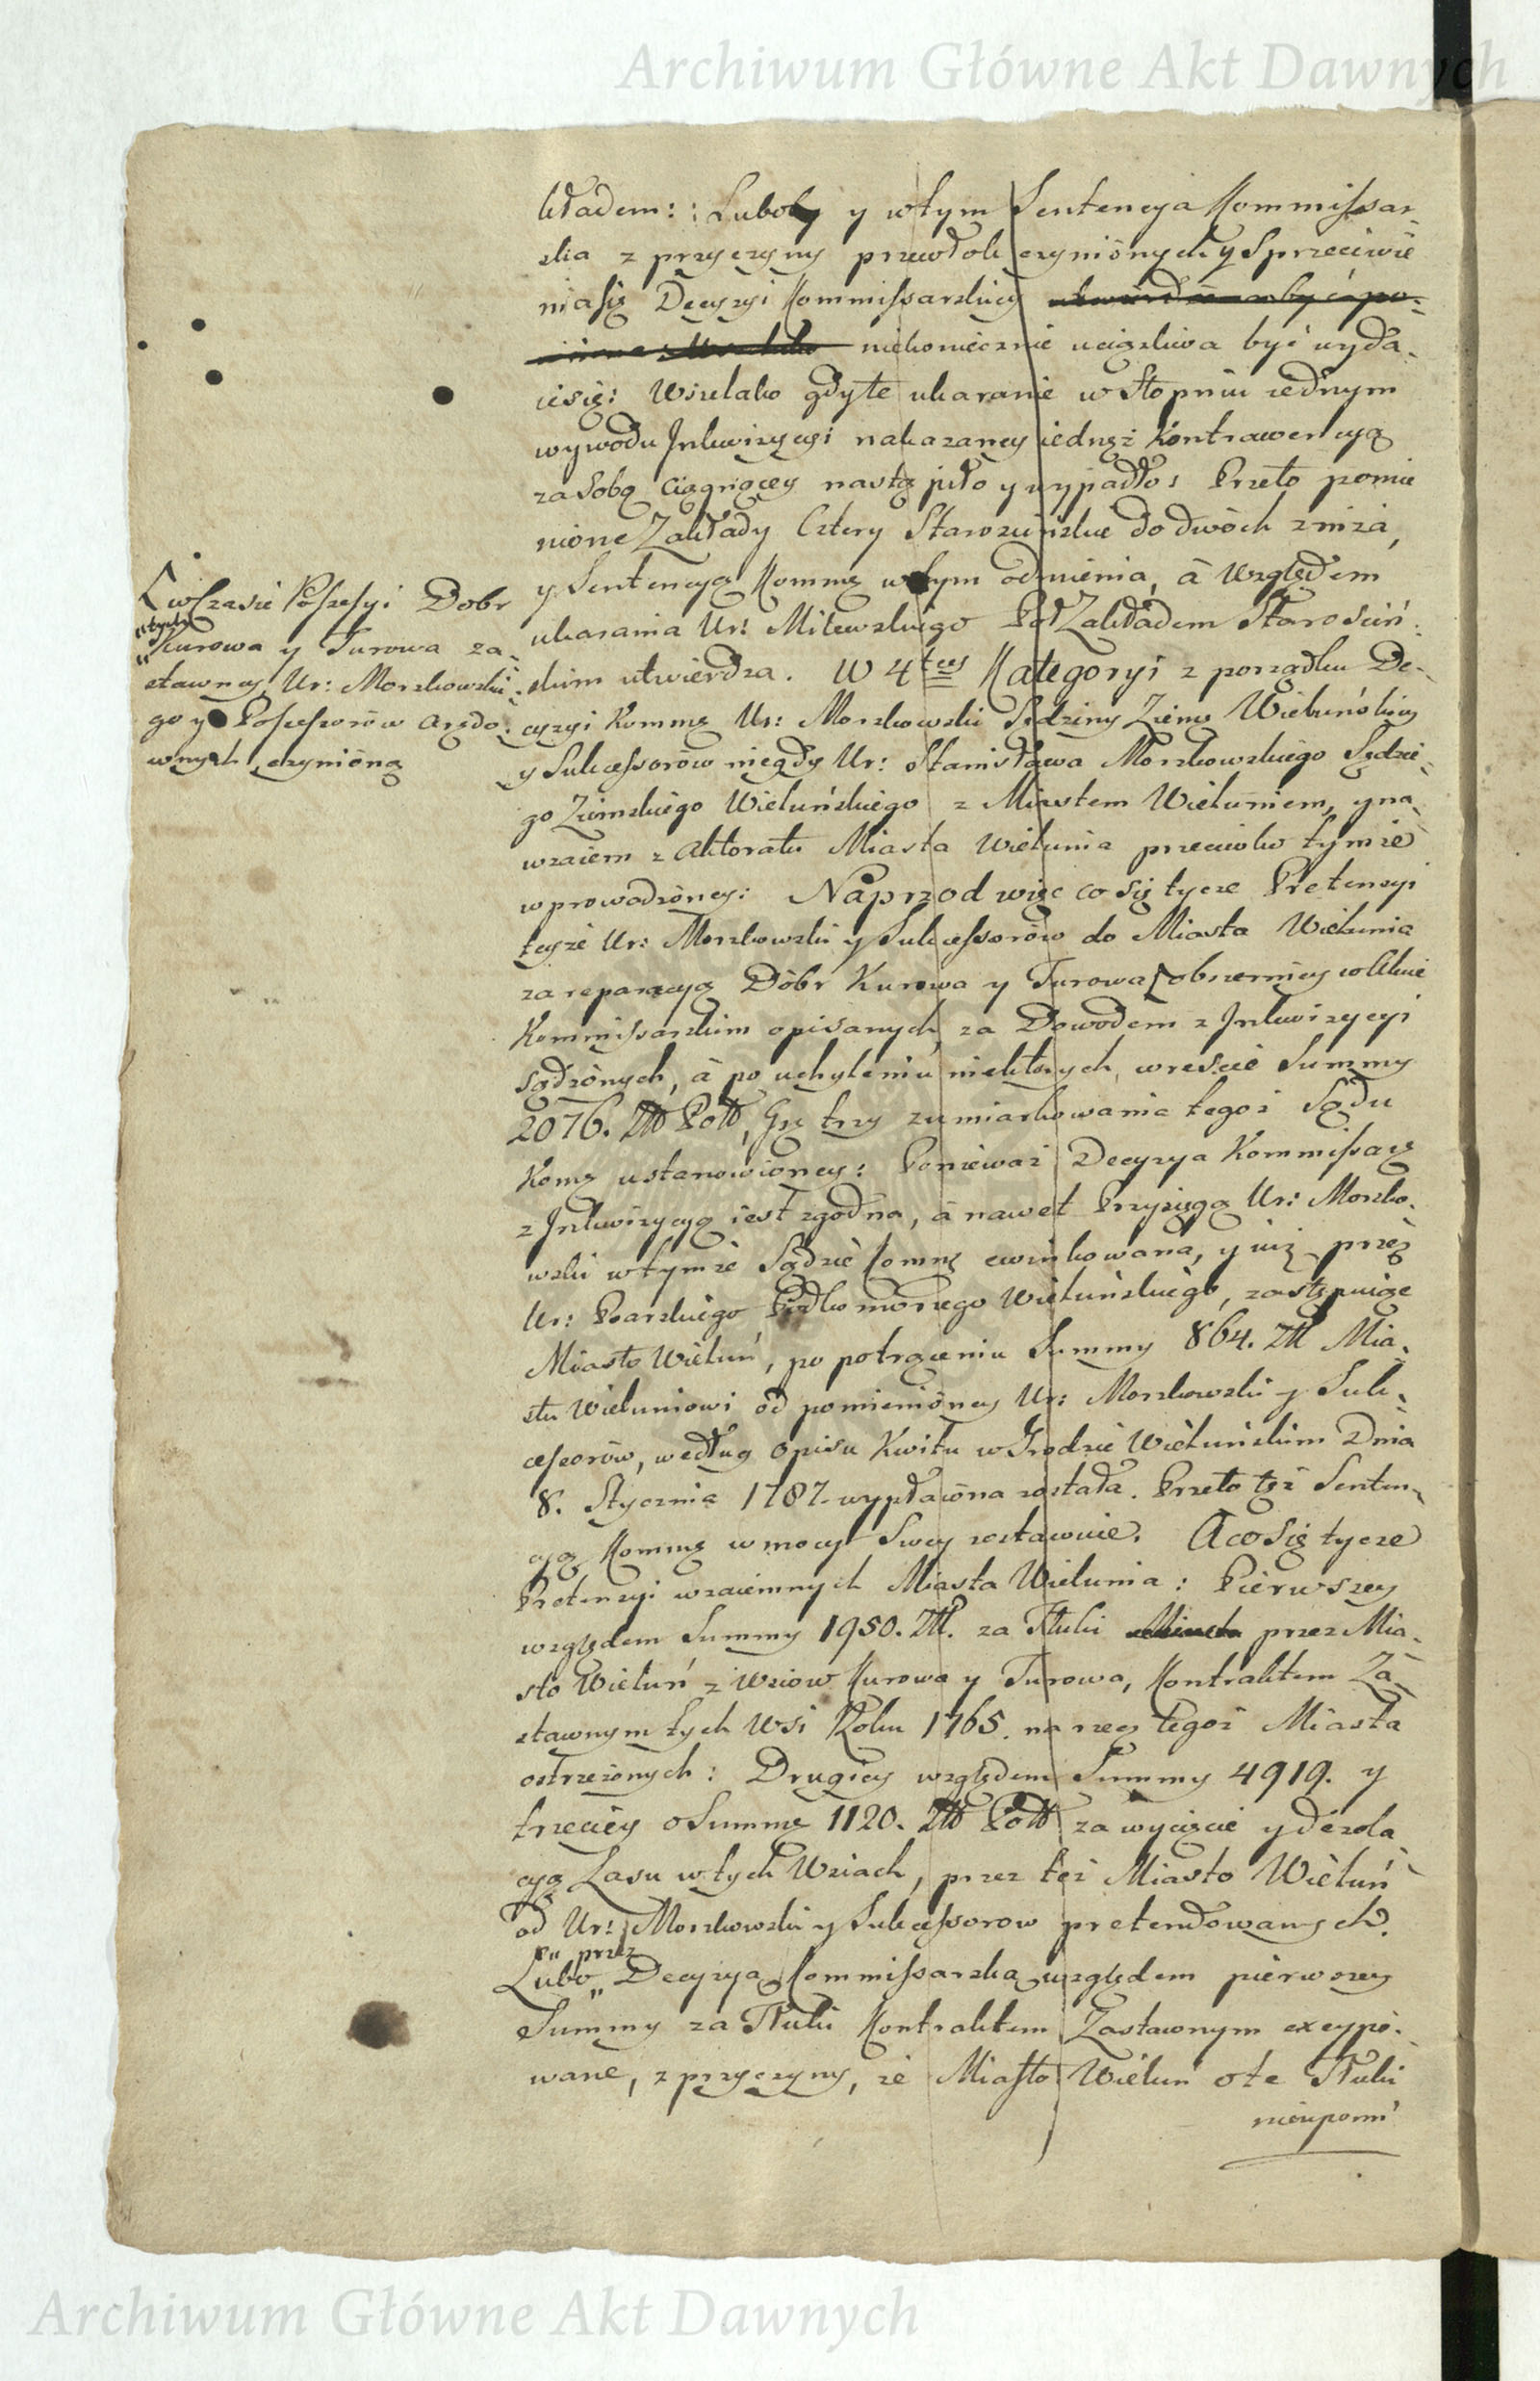 Archiwum Główne Akt Dawnych
kładem: : Lubo y w tym Sentencya Kommissar„
ska z przyczyny przewłok czyniōnych y Sprzeciwie
nia się Decyzyi Kommissarskiey
niekoniecznie uciązliwa być wyda„
ie się: Wszelako gdy te ukaranie w Stopniu iednym
wywodu Inkwizycyi nakazaney iednęż Kontrawencyą
za Sobą ciągnącey nastąpiło y wypadło: Przeto pomie
nione Zakłady Cztery Starościńskie do dwōch zniża,
y Sentencyą Kommą w tym odmienia, à Względem
ukarania Ur: Milewskiego Pod Zakładem Starościń„
skim utwierdza. W 4tey Kategoryi z porządku De„
cyzyi Kommą Ur: Morzkowski Sędziny Ziems Wieluńskiey
y Sukcessorōw niegdy Ur: Stanisława Morzkowskiego Sędzie„
go Ziemskiego Wieluńskiego z Miastem Wieluniem, y na„
wzaiem z Aktoratu Miasta Wielunia przeciwko tymże
wprowadzōney: Naprzod więc co się tycze Pretensyi
teyże Ur: Morzkowski y Sukcessorōw do Miasta Wielunia
za reparacyą Dōbr Kurowa y Turowa obszerniey w Akcie
Kommissarskim opisanych, za Dowodem z Inkwizycyi
sądzōnych, à po uchyleniu niektōrych, w reszcie Summy
2076. Zło Polo, Gr trzy zumiarkowania tegoż Sądu
Komg ustanowioney: Ponieważ Decyzya Kommissarg
z Inkwizycyą iest zgodna, à nawet Przysięga Ur: Morzko„
wski w tymże Sądzie Kommg ewinkowana, y iuż przez
Ur: Psarskiego Podkomorzego Wieluńskiego, zastępuiąc
Miasto Wieluń, po potrąceniu Summy 864. Zł Mia„
stu Wieluniowi od pomieniōney Ur: Morzkowski y Suk„
cessorōw, według opisu Kwitu w Grodzie Wieluńskim Dnia
8. Stycznia 1787. wypłacōna została. Przeto tęż Senten„
cyą Kommg w mocy Swey zostawuie. A co Się tycze
Pretensyi wzaiemnych Miasta Wielunia: Pierwszey
względem Summy 1950. Zł. za Tłuki Miasta przez Mia„
sto Wieluń z Wsiow Kurowa y Turowa, Kontraktem Za„
stawnym tych Wsi Roku 1765. na rzecz tegoż Miasta
ostrzeżonych: Drugiey względem Summy 4919. y
trzeciey o Summę 1120. Zło Polo za wycięcie y dezola„
cyą Lasu w tych Wsiach, przez też Miasto Wieluń
od Ur: Morzkowski y Sukcessorow pretendowanych.
przez
Lubo Decyzyą Kommissarską względem pierwszey
Summy za Tłuki Kontraktem Zastawnym excypo„
wane, z przyczyny, że Miasto Wieluń o te Tłuki
nieupomi
w Czasie Possessyi Dobr
tych
Kurowa y Turowa za„
stawney Ur: Morzkowski„
go y Possessorōw arędo„
wnych czyniōną
Archiwum Główne Akt Dawnych